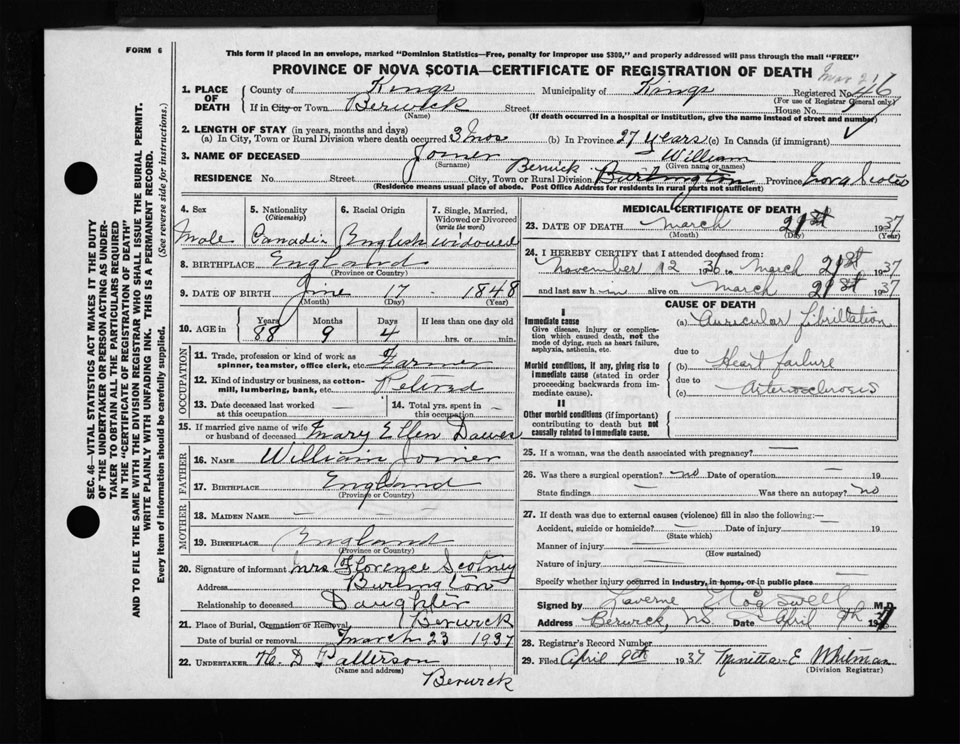 FORM 6
This form if placed in an envelope, marked "Dominion Statistics—Free, penalty for improper use $300," and properly addressed will pass through the mail "FREE"
PROVINCE OF NOVA SCOTIA—CERTIFICATE OF REGISTRATION OF DEATH
1. PLACE OF DEATH
County of Kings Municipality of Kings Registered No. 46
(For use of Registrar General only)
If in City or Town Berwick Street House No.
(Name) (If death occurred in a hospital or institution, give the name instead of street and number)
2. LENGTH OF STAY (in years, months and days)
(a) In City, Town or Rural Division where death occurred 3 mos (b) In Province 27 years (c) In Canada (if immigrant)
3. NAME OF DECEASED Joiner William
(Surname) (Given name or names)
RESIDENCE No. Street City, Town or Rural Division Berwick Burlington Province Nova Scotia
(Residence means usual place of abode. Post Office Address for residents in rural parts not sufficient)
4. Sex
Male
5. Nationality
(Citizenship)
Canadi-
6. Racial Origin
English
7. Single, Married, Widowed or Divorced
(write the word)
widowed
8. BIRTHPLACE England
(Province or Country)
9. DATE OF BIRTH June 17 1848
(Month) (Day) (Year)
10. AGE in
Years Months Days If less than one day old
88 9 4 hrs. or min.
OCCUPATION
11. Trade, profession or kind of work as
spinner, teamster, office clerk, etc. Farmer
12. Kind of industry or business, as cotton-
mill, lumbering, bank, etc. Retired
13. Date deceased last worked
at this occupation —
14. Total yrs. spent in
this occupation —
15. If married give name of wife
or husband of deceased Mary Ellen Dawes
FATHER
16. NAME William Joiner
17. BIRTHPLACE England
(Province or Country)
MOTHER
18. MAIDEN NAME —
19. BIRTHPLACE England
(Province or Country)
20. Signature of informant Mrs Florence Scotney
Address Burlington
Relationship to deceased Daughter
21. Place of Burial, Cremation or Removal Berwick
Date of burial or removal March 23 1937
22. UNDERTAKER H. D Patterson
(Name and Address)
Berwick
MEDICAL CERTIFICATE OF DEATH
23. DATE OF DEATH March 21st 1937
(Month) (Day) (Year)
24. I HEREBY CERTIFY that I attended deceased from:
November 12 1936 to March 21st 1937
and last saw h-im alive on March 21st 1937
CAUSE OF DEATH
I
Immediate cause
Give disease, injury or complica-
tion which caused death, not the
mode of dying, such as heart failure,
asphyxia, asthenia, etc.
(a) Auricular fibrillation
due to
Morbid conditions, if any, giving rise to
immediate cause (stated in order
proceeding backwards from im-
mediate cause).
(b) Heart failure
due to
(c) Arteriosclerosis
II
Other morbid conditions (if important)
contributing to death but not
causally related to immediate cause.
25. If a woman, was the death associated with pregnancy? —
26. Was there a surgical operation? no Date of operation — 19
State findings — Was there an autopsy? no
27. If death was due to external causes (violence) fill in also the following:—
Accident, suicide or homicide? — Date of injury 19
(State which)
Manner of injury —
(How sustained)
Nature of injury —
Specify whether injury occurred in industry, in home, or in public place —
Signed by Laverne E Cogswell M.D.
Address Berwick, NS Date April 9th 1937
28. Registrar's Record Number
29. Filed April 9th 1937 Minetta E Whitman
(Division Registrar)
SEC. 46—VITAL STATISTICS ACT MAKES IT THE DUTY
OF THE UNDERTAKER OR PERSON ACTING AS UNDER-
TAKER TO OBTAIN ALL THE PARTICULARS REQUIRED
IN THE "CERTIFICATE OF REGISTRATION OF DEATH"
AND TO FILE THE SAME WITH THE DIVISION REGISTRAR WHO SHALL ISSUE THE BURIAL PERMIT.
WRITE PLAINLY WITH UNFADING INK. THIS IS A PERMANENT RECORD.
Every item of information should be carefully supplied. (See reverse side for instructions.)